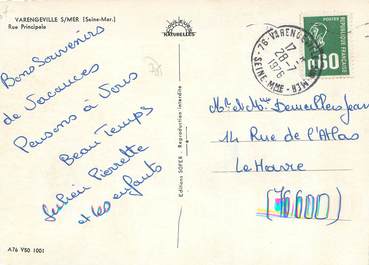 VARENGEVILLE S/MER (Seine-Mar.)
Rue Principale
NATURELLES
Bons Souvenirs
de Vacances
Pensons à Vous
Beau Temps
Julien Pierrette
et les enfants
A76 V50 1001
Editions SOFER - Reproduction interdite
76 - VARENGEVILLE
17 H
28-7
1976
SEINE MME
0.60
REPUBLIQUE FRANÇAISE
Mr et Mme Demeilles Jean
14 Rue de l'Atlas
Le Havre
(76600)